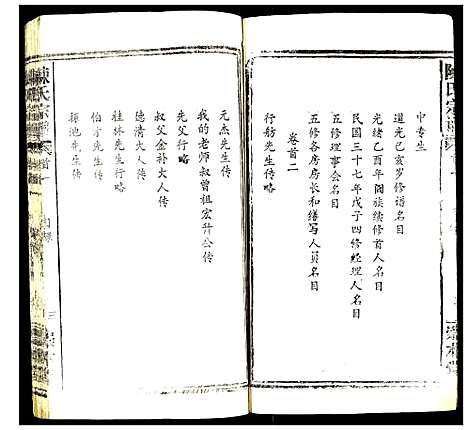 陳氏宗譜
中专生
道光己亥岁修谱名目
光绪乙酉年阖族续修首人名目
民国三十七年戊子四修经理人名目
五修理事会名目
五修各房房长和缮写人员名目
卷首二
行舫先生传略
元杰先生传
我的老师叔曾祖宏升公传
先父行略
叔父金补大人传
德清大人传
桂林先生行略
伯才先生传
陳氏宗譜
卷首一
目録
三